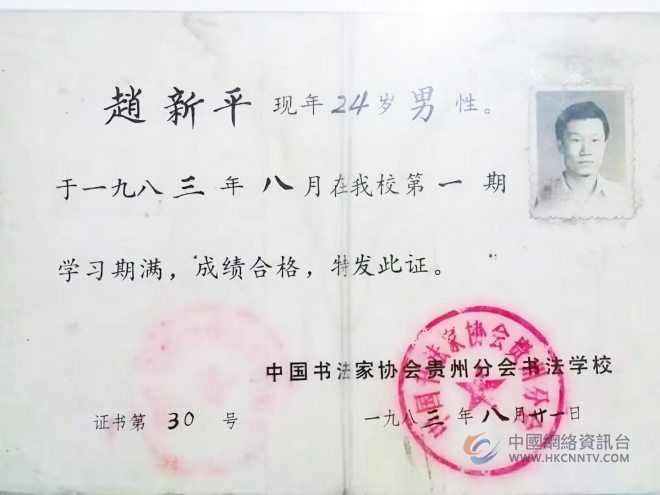 趙新平现年24岁男性。
于一九八三年八月在我校第一期
学习期满，成绩合格，特发此证。
中国书法家协会贵州分会书法学校
证书第30号
一九八三年八月廿一日
中国书法家协会贵州分会
中國網絡資訊台
WWW.HKCNNTV.COM